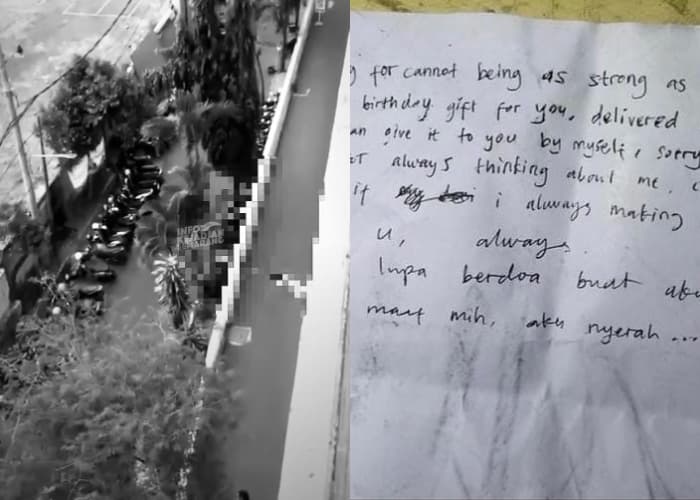 for cannot being as strong as
birthday gift for you. delivered
give it to you by myself, sorry
always thinking about me.
if i always making
u, always.
lupa berdoa buat aku
maaf mih, aku nyerah...